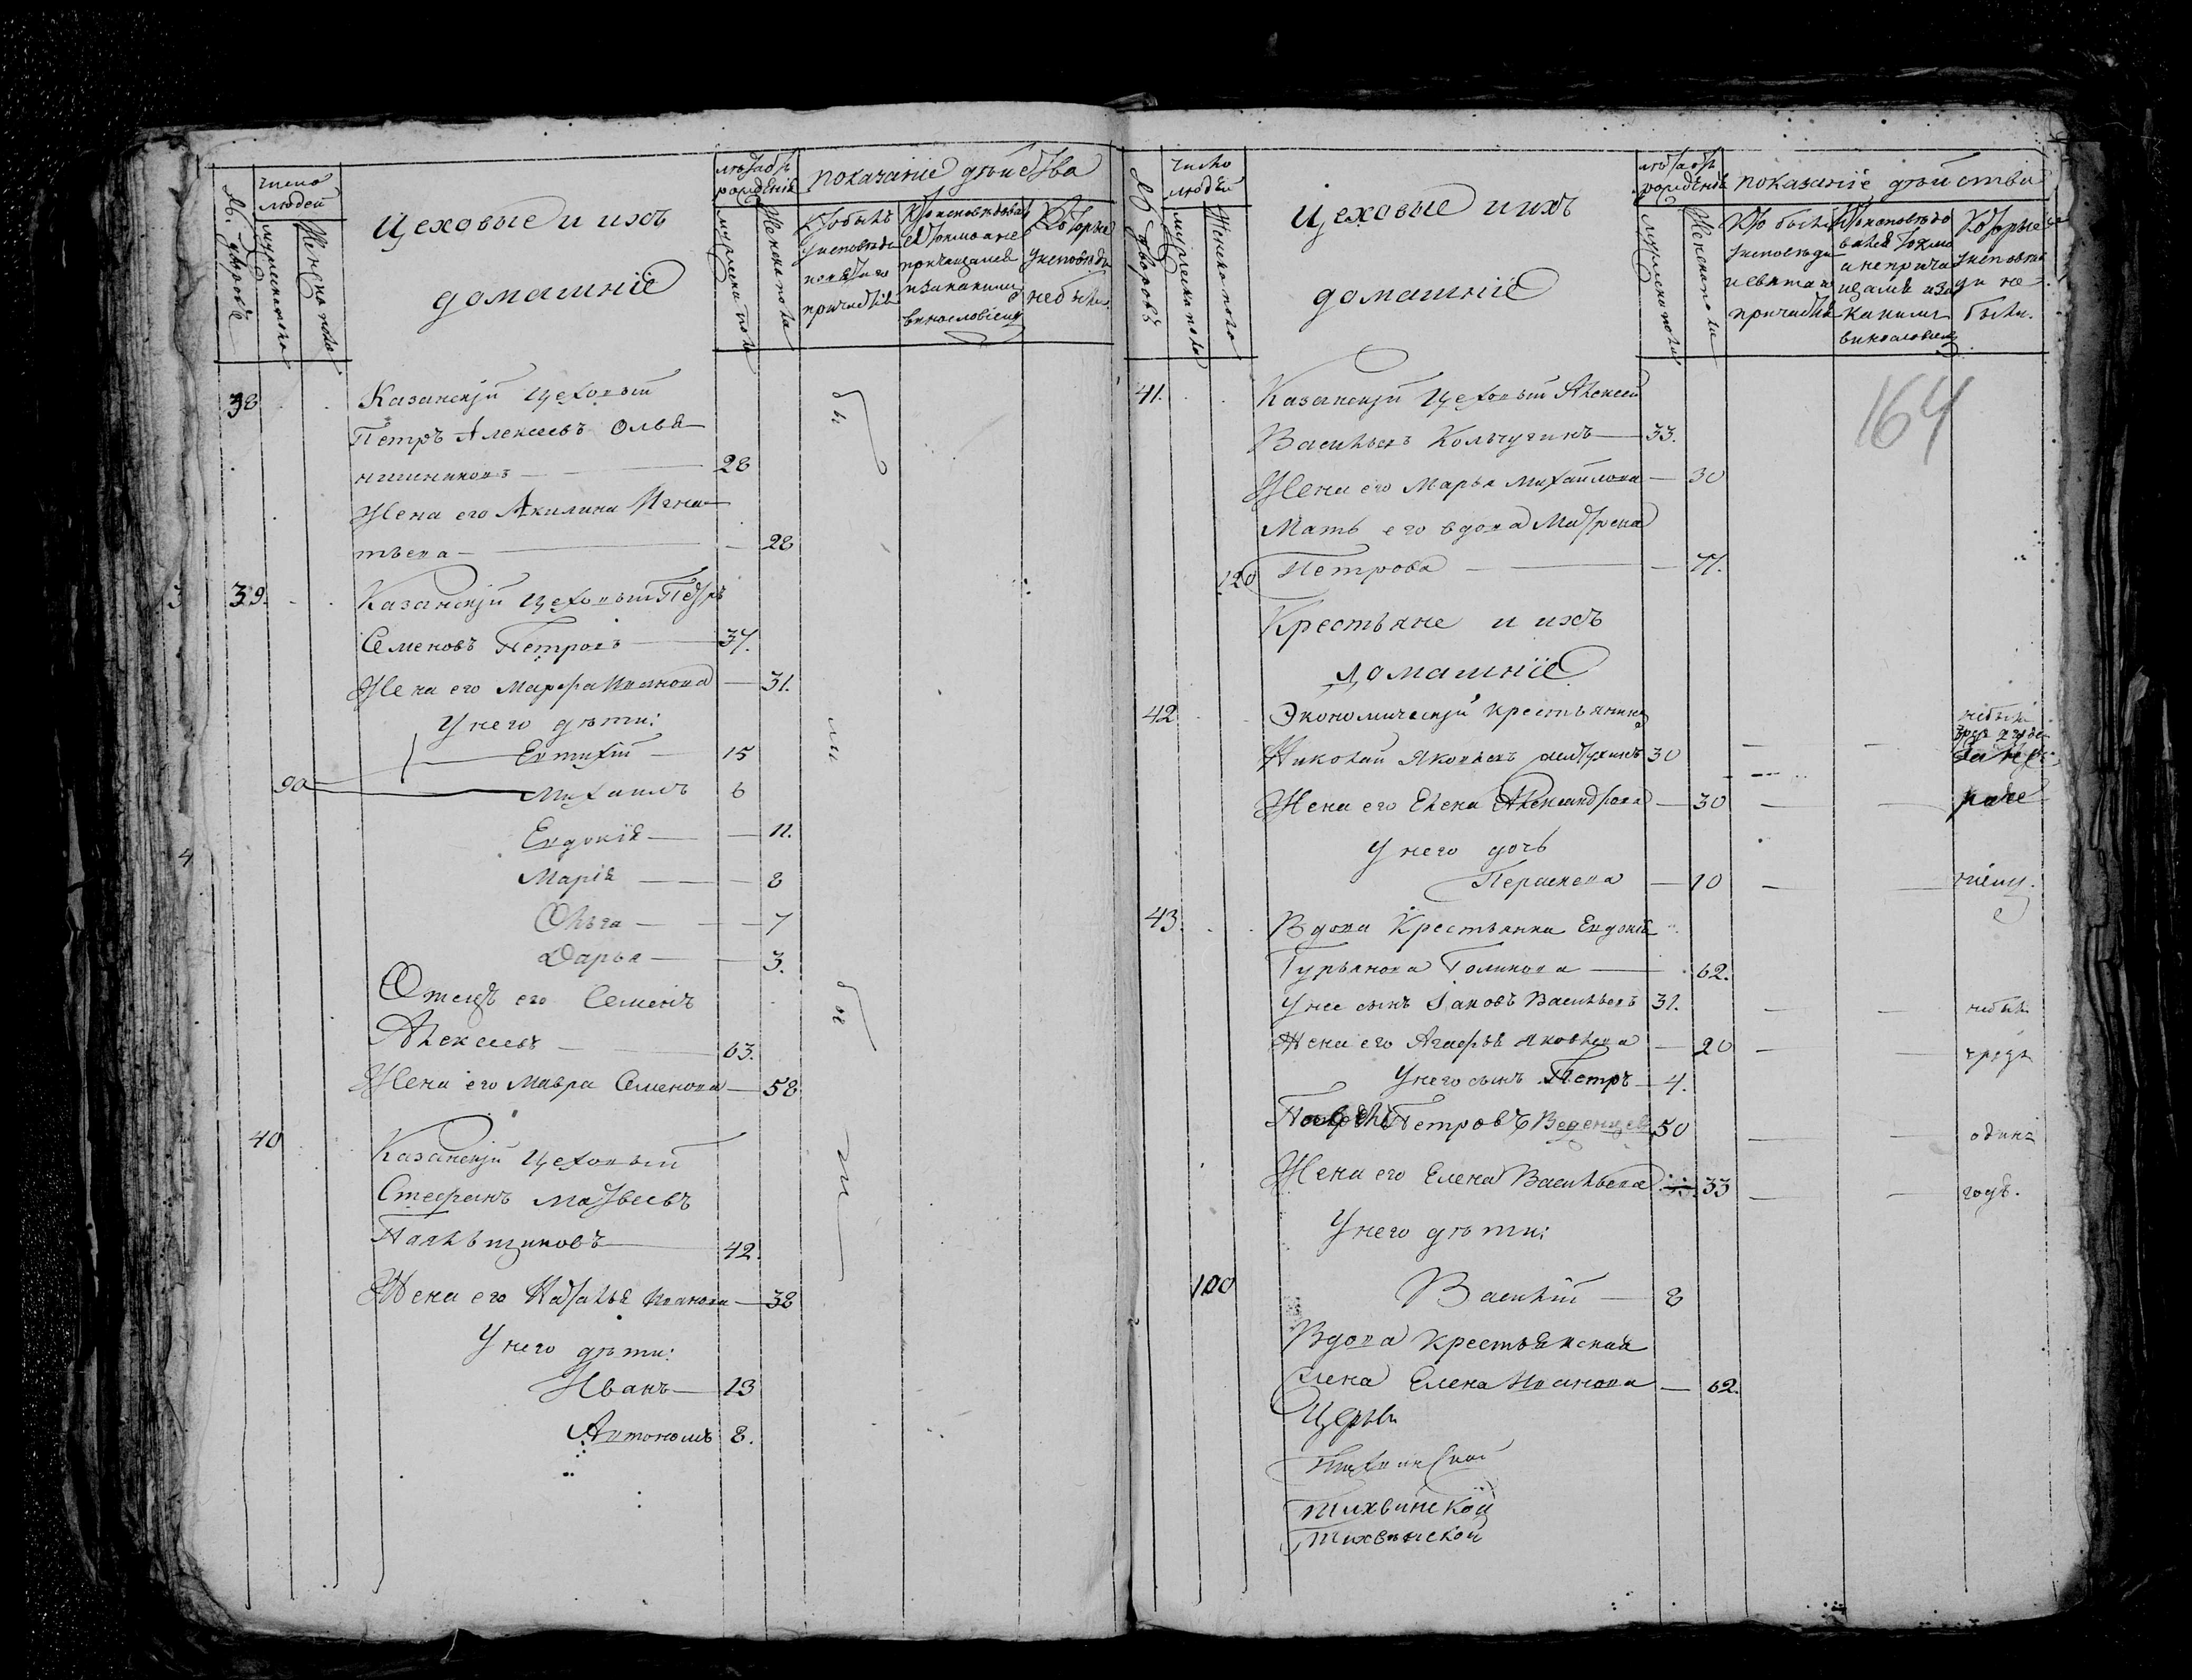 № дворовъ
число
людей
мужеска пола
Женска пола
Цеховые и ихъ
домашніе
лѣта отъ
рожденія
мужеска пола
Женска пола
показаніе дѣйства
Кто былъ
у исповѣди
и святаго
причастія
Кто исповѣдывал
ся токмо а не
причащался
и за какимъ
винословіемъ
Которые
у исповѣди
не были.
38
Казанскій Цеховый
Петръ Алексеевъ Оловя
нишниковъ 28
Жена его Акилина Игна
тьева 28
39.
Казанскій Цеховый Петръ
Семеновъ Петровъ 37.
Жена его Марфа Иванова 31.
У него дѣти:
Евтихій 15
90
Михаилъ 6
Евдокія 11.
Марія 8
Ольга 7
Дарья 3.
Отецъ его Семенъ
Алексеевъ 63.
Жена его Мавра Семенова 58
40
Казанскій Цеховый
Стефанъ Матвеевъ
42.
Жена его Наталья Иванова 38
У него дѣти:
Иванъ 13
Автономъ 8.
бы
ли
бы
ли
№ дворовъ
число
людей
мужеска пола
Женска пола
Цеховые и ихъ
домашніе
лѣта отъ
рожденія
мужеска пола
Женска пола
показаніе дѣйства
Кто былъ
у исповѣди
и святаго
причастія
Кто исповѣдо
вался токмо
а не прича
щался и за
какимъ
винословіемъ
Которые
у исповѣ
ди не
были.
164
41.
Казанскій Цеховый Алексей
Васильевъ Кольчугинъ 33.
Жена его Марья Михайлова 30
Мать его вдова Матрена
120
Петрова 77.
Крестьяне и ихъ
домашніе
42
Экономическій крестьянинъ
Николай Яковлевъ 30
Жена его Елена Александрова 30
У него дочь
Параскева 10
43.
Вдова Крестьянка Евдокія
Гурьянова Голикова 62.
У нее сынъ Іаковъ Васильевъ 31. небыл
Жена его Агафья Яковлева 20 чрезъ
У него сынъ Петръ 4.
Петровъ Веденцев 50 одинъ
Жена его Елена Васильева 33 годъ.
У него дѣти:
100
Василій 8
Вдова крестьянская
жена Елена Иванова 62.
Церкви
Тихвинской
Тихвинской
Тихвинской